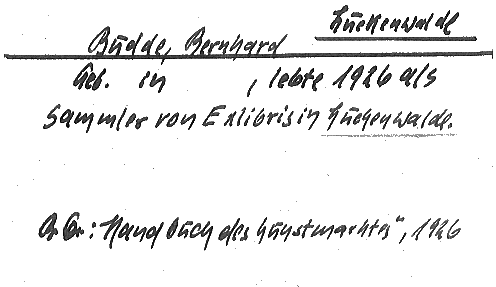 Luckenwalde
Budde, Bernhard
Geb. in , lebte 1926 als
Sammler von Exlibris in Luckenwalde.
: "Handbuch des Kunstmarktes", 1926